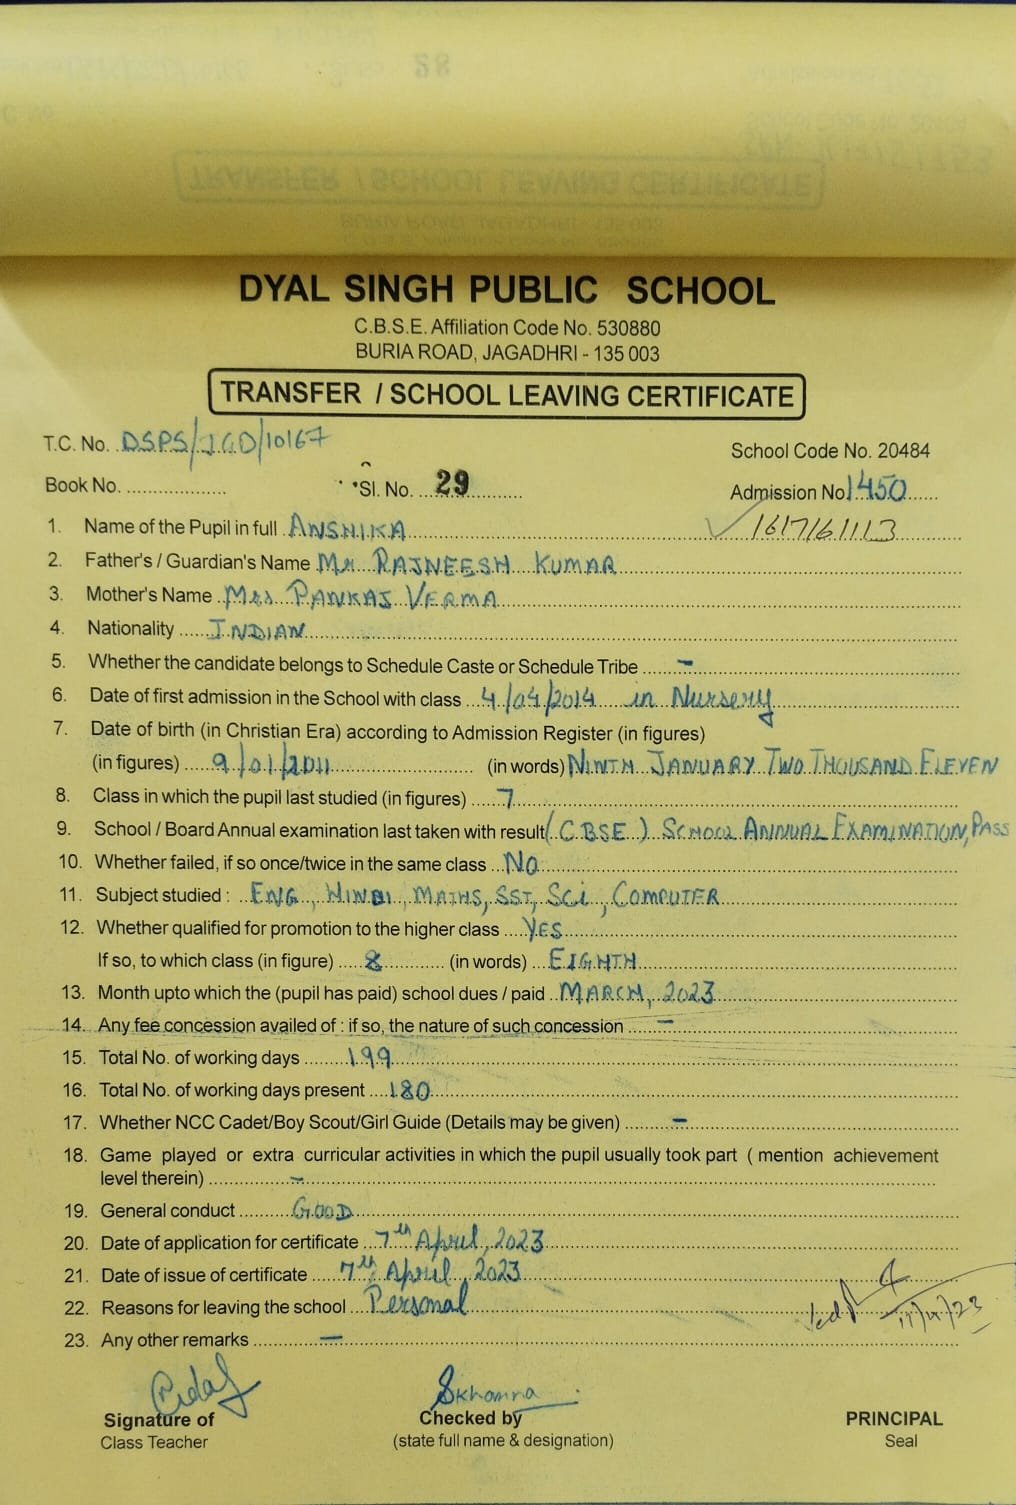 DYAL SINGH PUBLIC SCHOOL
C.B.S.E. Affiliation Code No. 530880
BURIA ROAD, JAGADHRI - 135 003
TRANSFER / SCHOOL LEAVING CERTIFICATE
T.C. No. DSPS/JGD/10167
School Code No. 20484
Book No. .................... Sl. No. 29 Admission No. 1450
1. Name of the Pupil in full ANSHIKA 161716113
2. Father's / Guardian's Name Mr RAJNEESH KUMAR
3. Mother's Name Mrs PANKAJ VERMA
4. Nationality INDIAN
5. Whether the candidate belongs to Schedule Caste or Schedule Tribe -
6. Date of first admission in the School with class 4/04/2014 in Nursery
7. Date of birth (in Christian Era) according to Admission Register (in figures)
(in figures) 9/01/2011 (in words) NINTH JANUARY TWO THOUSAND ELEVEN
8. Class in which the pupil last studied (in figures) 7
9. School / Board Annual examination last taken with result (CBSE) SCHOOL ANNUAL EXAMINATION, PASS
10. Whether failed, if so once/twice in the same class No
11. Subject studied : ENG, HINDI, MATHS, SST, SCi, COMPUTER
12. Whether qualified for promotion to the higher class YES
If so, to which class (in figure) 8 (in words) EIGHTH
13. Month upto which the (pupil has paid) school dues / paid MARCH, 2023
14. Any fee concession availed of : if so, the nature of such concession -
15. Total No. of working days 199
16. Total No. of working days present 180
17. Whether NCC Cadet/Boy Scout/Girl Guide (Details may be given) -
18. Game played or extra curricular activities in which the pupil usually took part ( mention achievement
level therein) -
19. General conduct GOOD
20. Date of application for certificate 7th April, 2023
21. Date of issue of certificate 7th April, 2023
22. Reasons for leaving the school Personal
23. Any other remarks -
Skhanna
Signature of Checked by PRINCIPAL
Class Teacher (state full name & designation) Seal